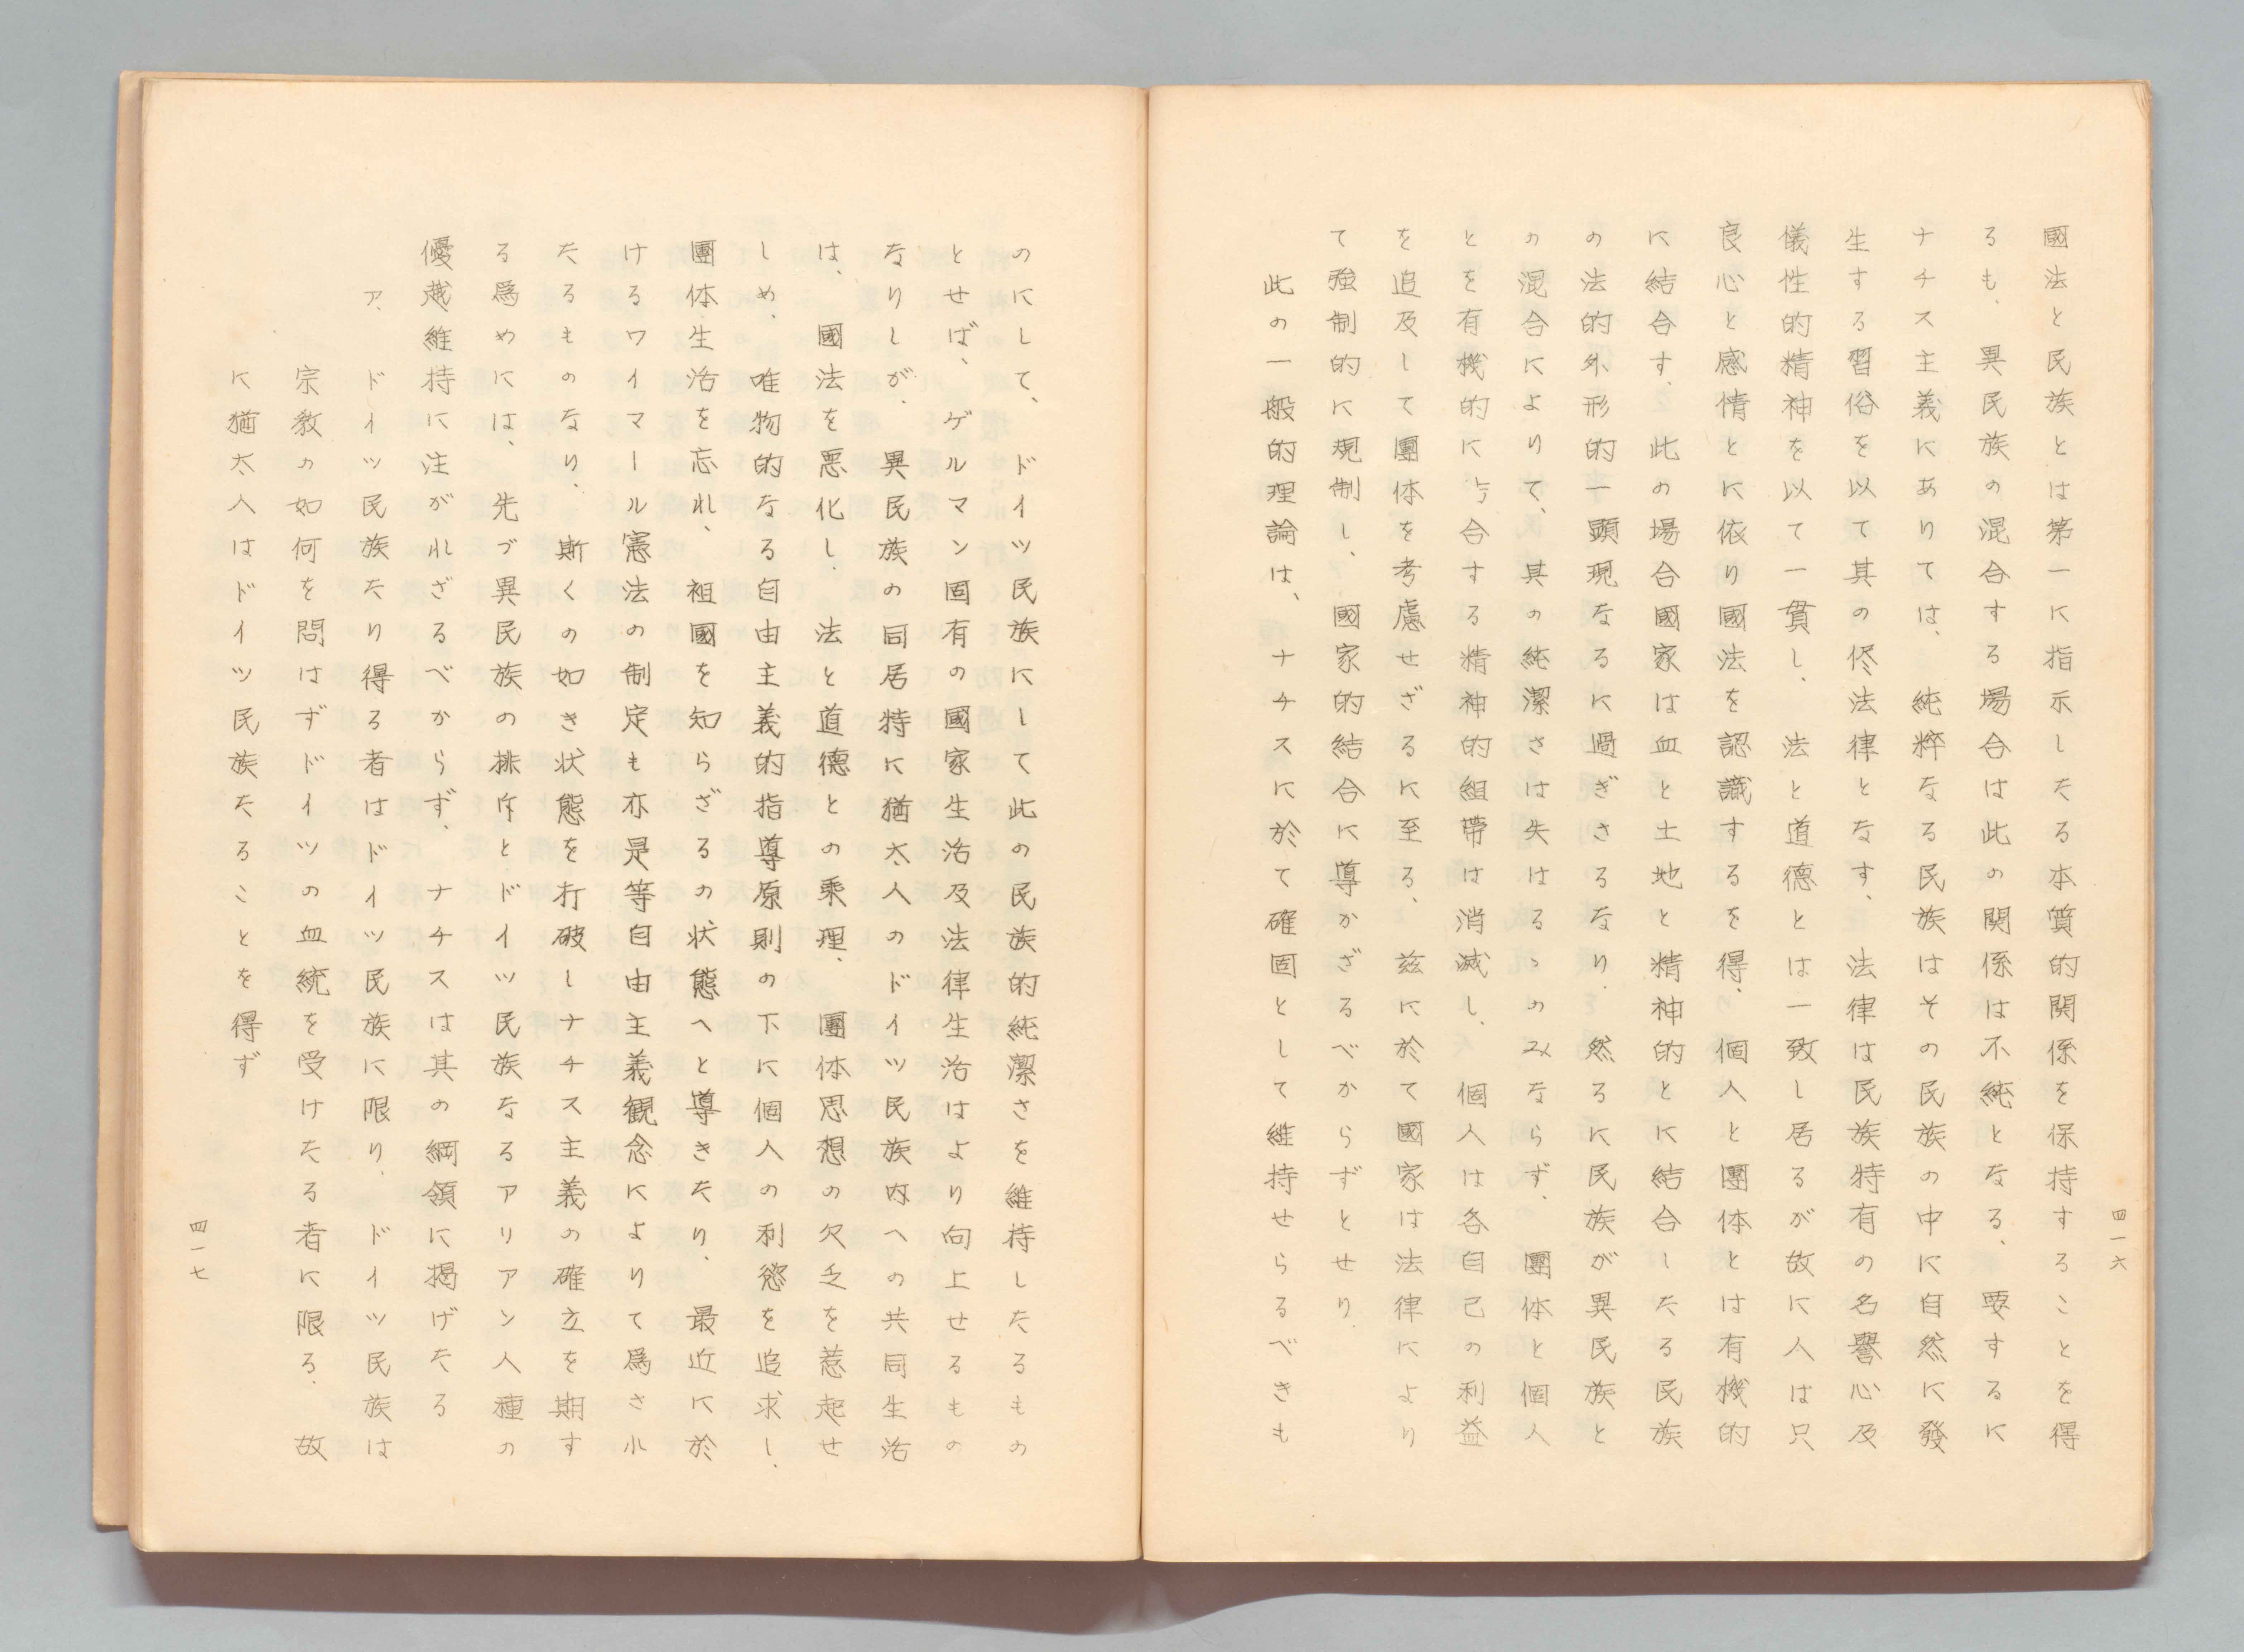 四一六
國法と民族とは第一に指示したる本質的関係を保持することを得
るも、異民族の混合する場合は此の関係は不純となる、要するに
ナチス主義にありては、純粹なる民族はその民族の中に自然に發
生する習俗を以て其の法律となす、法律は民族特有の名譽心及
儀性的精神を以て一貫し、法と道德とは一致し居るが故に人は只
良心と感情とに依り國法を認識するを得、個人と團体とは有機的
に結合す、此の場合國家は血と土地と精神的とに結合したる民族
の法的外形的一顕現なるに過ぎさるなり、然るに民族が異民族と
の混合によりて、其の純潔さは失はるゝのみならず、團体と個人
とを有機的に合する精神的組帶は消滅し、個人は各自己の利益
を追及して團体を考慮せざるに至る、玆に於て國家は法律により
て強制的に規制し、國家的結合に導かざるべからずとせり、
此の一般的理論は、ナチスに於て確固として維持せらるべきも
のにして、ドイツ民族にして此の民族的純潔さを維持したるもの
とせば、ゲルマン固有の國家生活及法律生活はより向上せるもの
なりしが、異民族の同居特に猶太人のドイツ民族内への共同生活
は、國法を悪化し、法と道德との乘理、團体思想の欠乏を惹起せ
しめ、唯物的なる自由主義的指導原則の下に個人の利慾を追求し、
團体生活を忘れ、祖國を知らざるの状態へと導きたり、最近に於
けるワイマール憲法の制定も亦是等自由主義観念によりて爲され
たるものなり、斯くの如き状態を打破しナチス主義の確立を期す
る爲めには、先づ異民族の排斥とドイツ民族なるアリアン人種の
優越維持に注がれざるべからず、ナチスは其の綱領に掲げたる
ア、ドイツ民族たり得る者はドイツ民族に限り、ドイツ民族は
宗教の如何を問はずドイツの血統を受けたる者に限る、故
に猶太人はドイツ民族たることを得ず
四一七